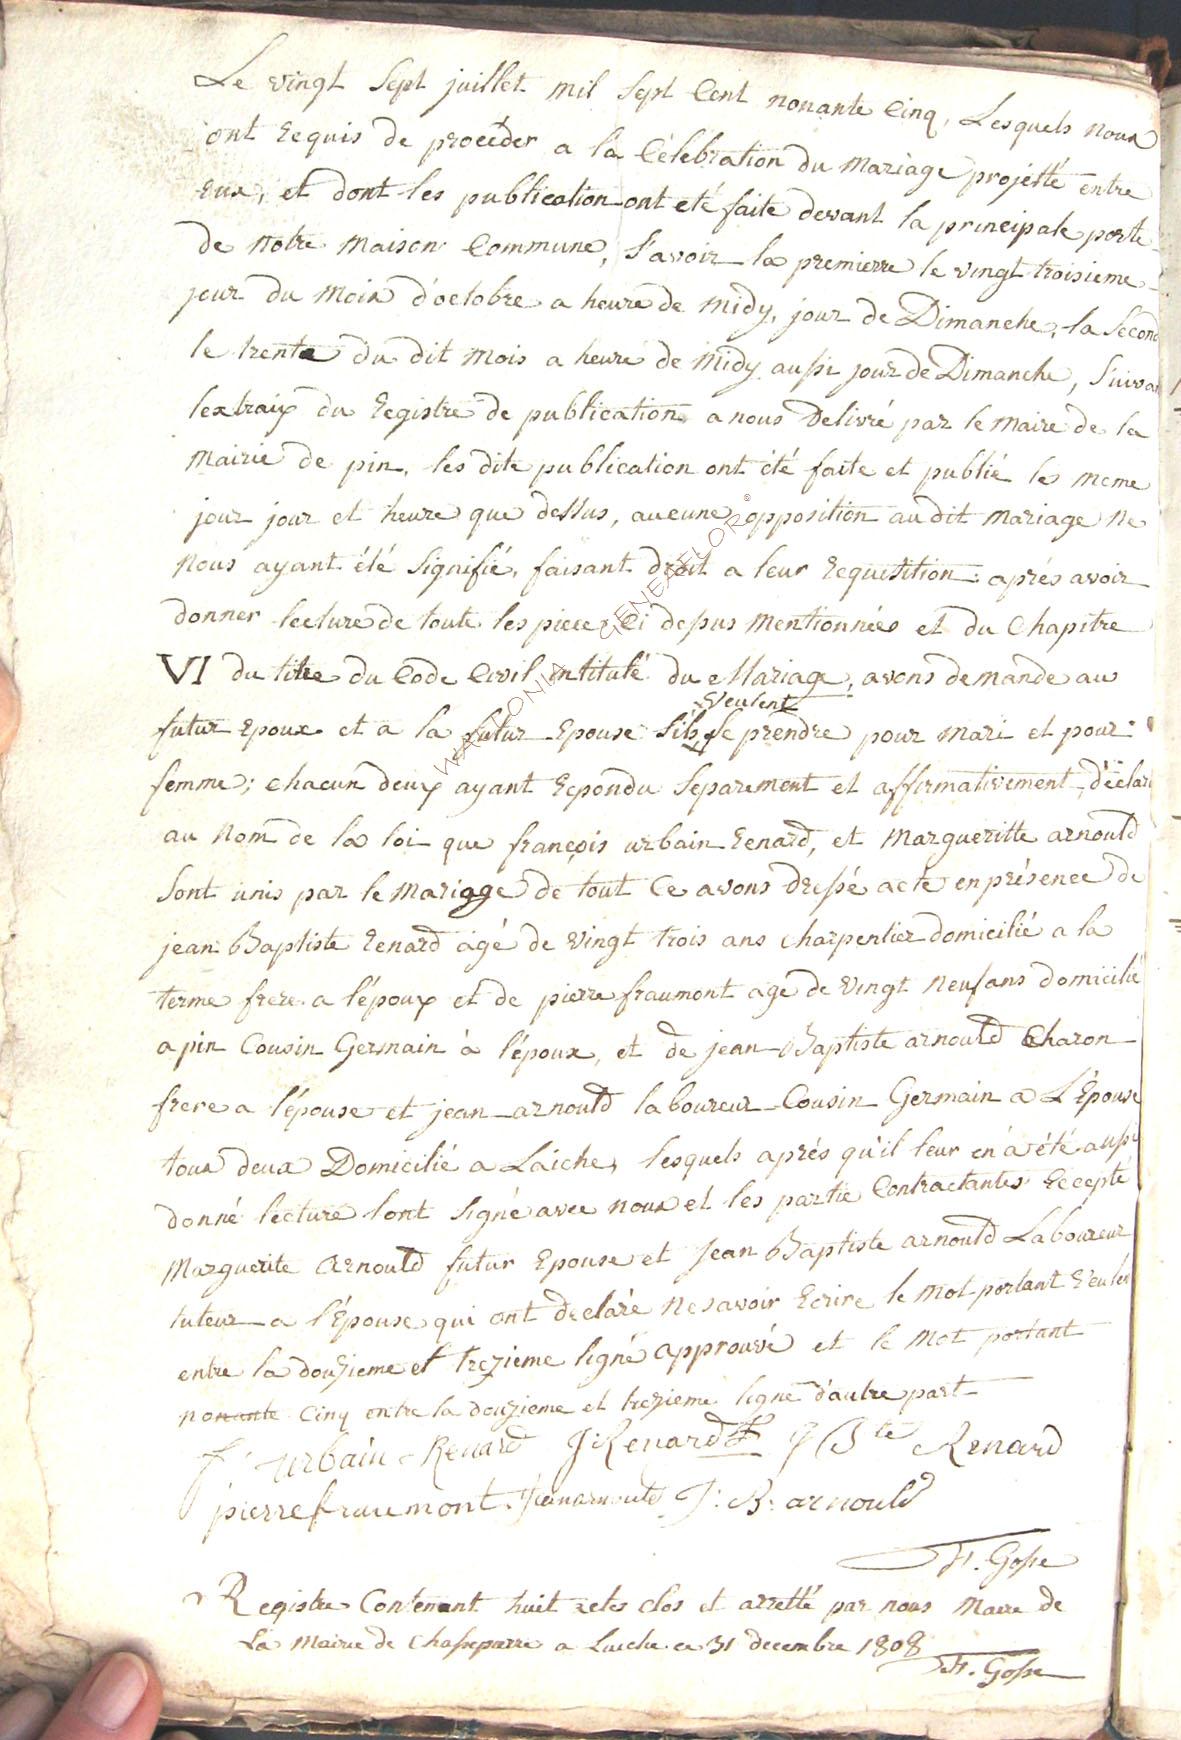 Le vingt Sept juillet mil Sept Cent nonante Cinq, Lesquels nous
ont Requis de proceder a la Célébration du Mariage projetté entre
Eux, et dont les publication ont eté faite devant la principale porte
de notre Maison Commune, Savoir la premierre le vingt troisieme
jour du Mois d'octobre a heure de Midy, jour de Dimanche, la Second
le trente du dit Mois a heure de Midy aussi jour de Dimanche, Suivan
lextraix du Registre de publication a nous Delivré par le Maire de la
Mairie de pin, les dite publication ont été faite et publié les meme
jour jour et heure que dessus, aucune opposition audit Mariage Ne
Nous ayant été Signifié, faisant droit a leur Requisition: aprés avoir
donner lecture de toute les piece Ci depus Mentionnées et du Chapitre
VI du titre du Code Civil intitulé du Mariage, avons demande au
Veulent
futur Epoux et a la futur Epouse Sils Se prendre pour Mari et pour
femme; Chacun deux ayant Repondu Separement et affirmativement, déclar
au Nom de la loi que françois urbain Renard, et Margueritte arnould
Sont unis par le Mariage de tout Ce avons dressé acte en présence de
jean Baptiste Renard agé de Vingt trois ans Charpentier domicilié a la
terme frere a l'époux et de pierre fraumont age de Vingt Neuf ans domicilié
a pin Cousin Germain à l'époux, et de jean Baptiste arnould Charon
frere a l'épouse et jean arnould laboureur Cousin Germain a L'Epouse
tous deux Domicilié a Laiche, lesquels aprés qu'il leur en a été aussi
donné lecture Sont Signé avec nous et les partie Contractantes Eccepté
Marguerite Arnould futur Epouse et Jean Baptiste arnould Laboureur
tuteur a l'Epouse qui ont declaré Ne savoir Ecrire le Mot portant Veulent
entre la douzieme et trezieme ligne approuvé et le Mot portant
nonante Cinq entre la douzieme et trezieme ligne d'autre part
f. urbain Renard J Renard J Bte Renard
pierre fraumont Jean arnould J. B. arnould
H. Gosse
Registre Contenant huit actes clos et arretté par nous Maire de
La Mairie de Chassepierre a Laiche ce 31 decembre 1808
H. Gosse
© WALLONIA GENEALOR